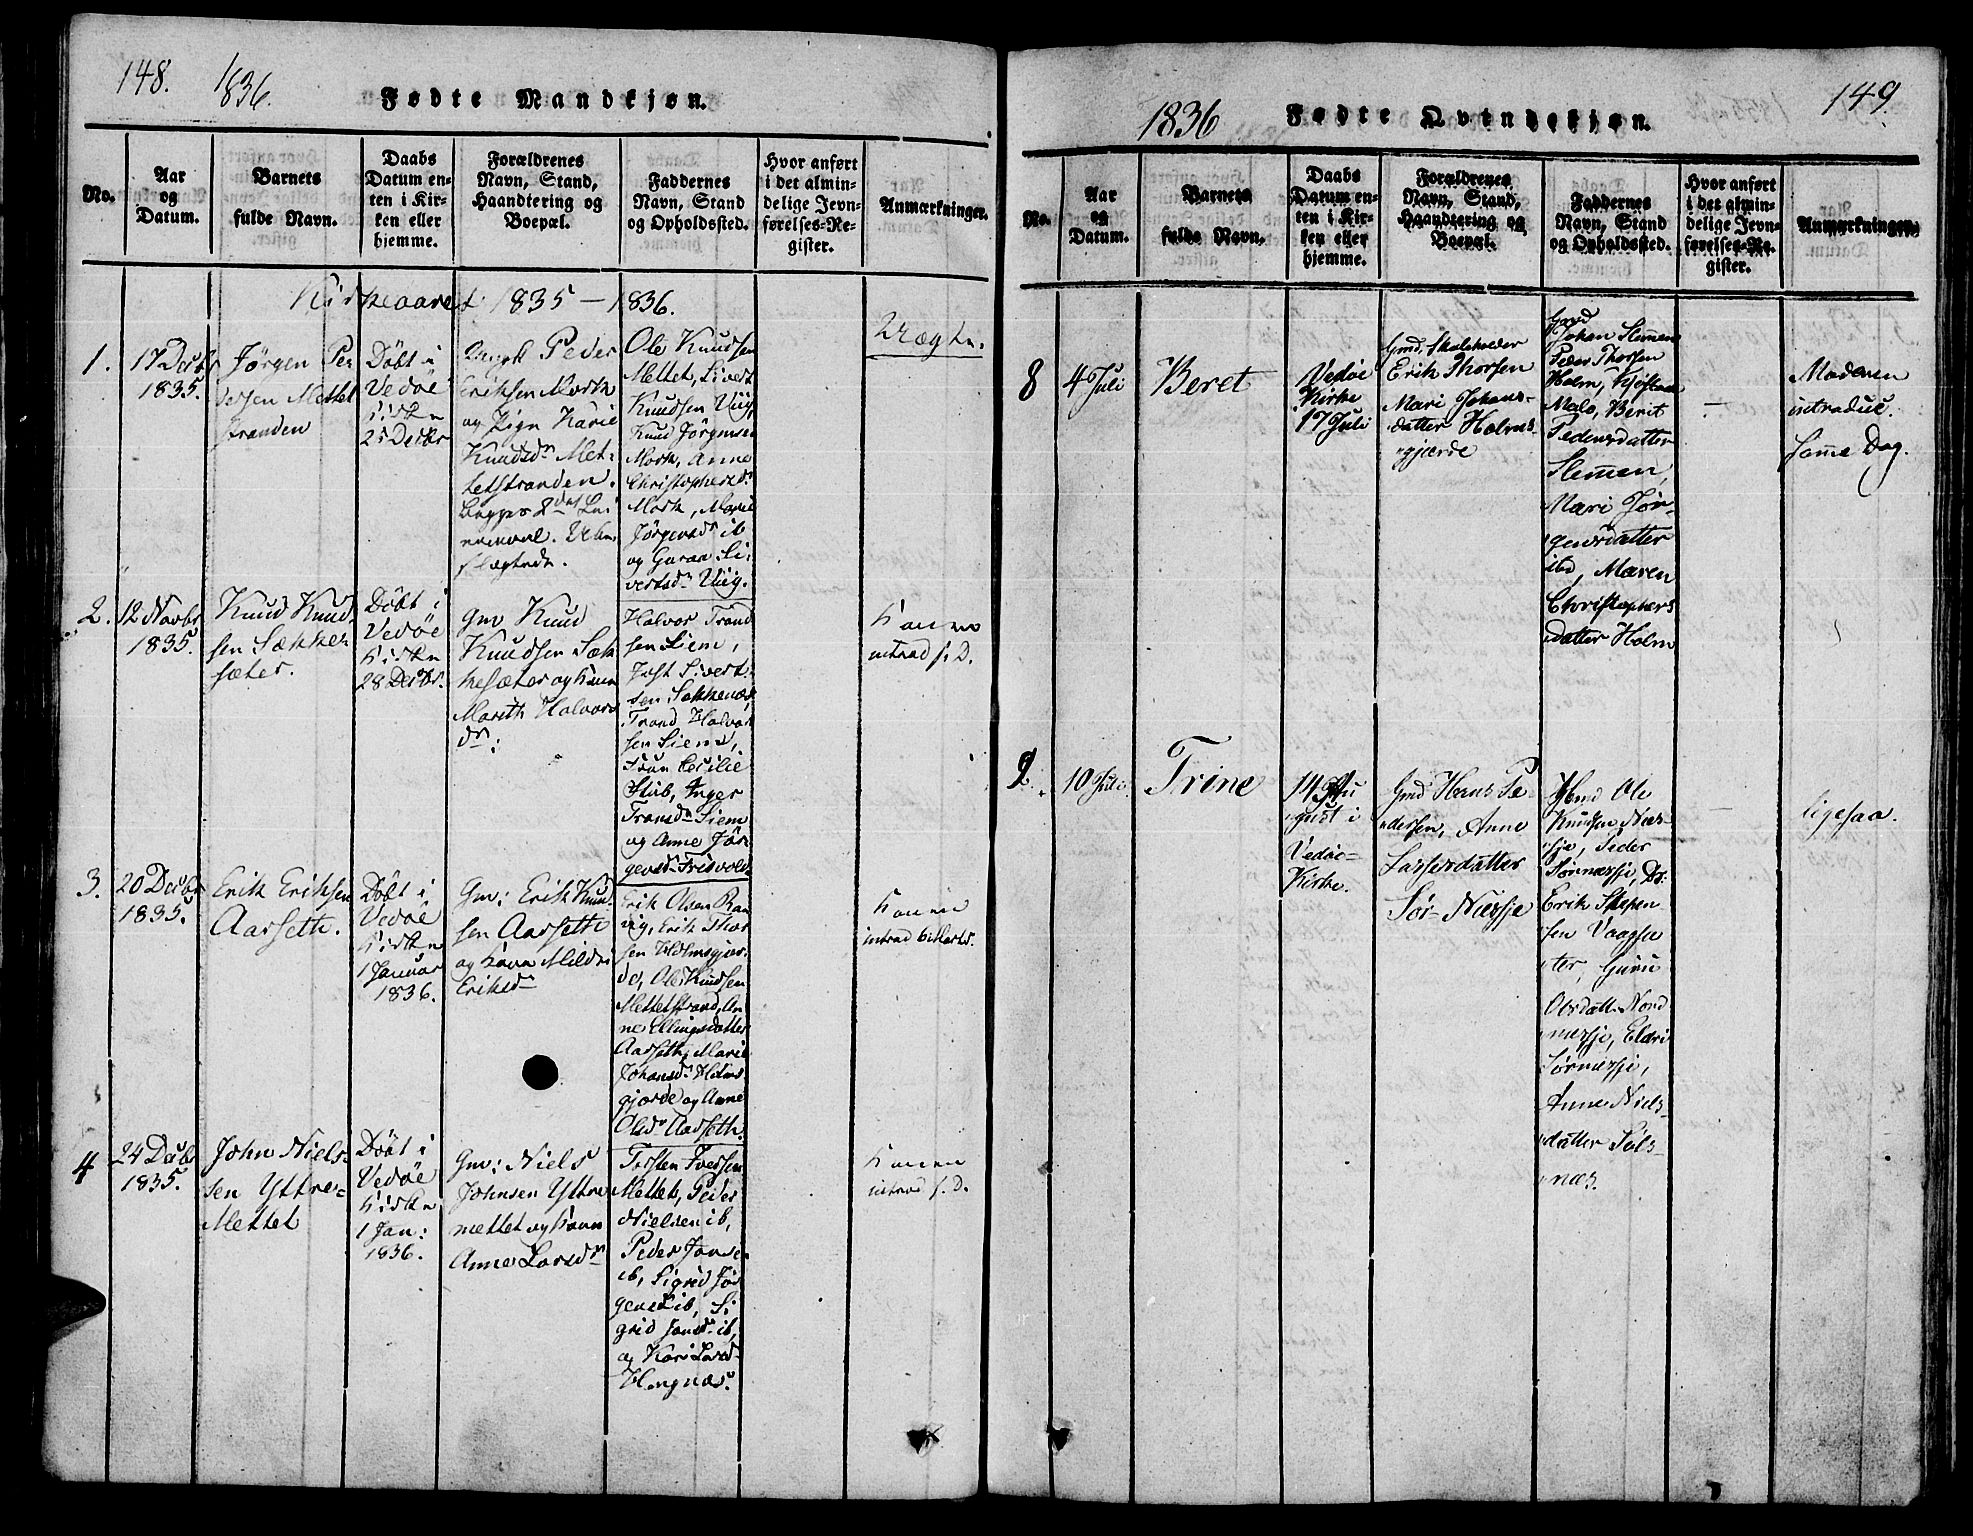 148. 1836.
Fødte Mandkjøn.
No.
Aar
og
Datum.
Barnets
fulde Navn.
Daabs
Datum en-
ten i Kir-
ken eller
hjemme.
Forældrenes
Navn, Stand,
Haandtering og
Boepæl.
Faddernes
Navn, Stand
og Opholdssted.
Hvor anført
i det almin-
delige Jevn-
førelses-Re-
gister.
Anmærkninger.
Kirkeaaret 1835 – 1836.
1.
17 Decbr
1835.
Jørgen Pe-
dersen Mettet
stranden
Døbt i
Vedøe
Kirke
25 Decbr
Ungk Peder
Eriksen Mork
og Pige Karie
Knudsdr Met-
tetstranden.
Begges 2det Lei
ermaal.
Ole Knudsen
Mettet, Sivert
Knudsen Viig,
Knud Jørgensen
Mork, Anne
Christophersdr
Mork, Marie
Jørgensdr ib
og Guraa Si-
vertsdr Viig.
Uægte.
2.
12 Novbr
1835.
Knud Knud-
sen Sække-
sæter.
Døbt i
Vedøe
Kirke
28 Decbr.
Gm Knud
Knudsen Sæk
kesæter og Kone
Mareth Halvors
dr:
Halvor Trond
sen Siem,
Jost Sivert-
sen Sækkenæs,
Trond Halvor
sen Siem,
Frue Cecilie
Stub, Inger
Tronsdr Siem
og Anne Jør-
gensdr Frisvold.
Konen
introd s. D.
3.
20 Decbr
1835.
Erik Eriksen
Aarseth.
Døbt i
Vedøe
Kirke
1 Januar
1836.
Gm: Erik Knu-
sen Aarseth
og Kone Mildri
Eriksdr
Erik Olsen Ran
vig, Erik Thor
sen Holmsgjær-
de, Ole Knudsen
Mettetstrand, An
ne Ellingsdatter
Aarseth, Marie
Johansdr Holms
gjærde og Anne
Olsdr Aarseth.
Konen
introd 6 Marts.
4
24 Decbr
1835.
John Niels-
sen Yttre-
Mettet
Døbt i
Vedøe
Kirke
1 Jan:
1836.
Gm: Niels
Johnsen Yttre
mettet og Kone
Anne Larsdr
Torsten Iversen
Mettet, Peder
Nielsen ib,
Peder Jonse
ib, Sigrid Jør
gensd ib, Si
grid Jonsdr ib,
og Kari Larsd
Hengnæs.
1836
Fødte Qvindekjøn.
149.
No.
Aar
og
Datum.
Barnets
fulde Navn.
Daabs
Datum en-
ten i Kir-
ken eller
hjemme.
Forældrenes
Navn, Stand,
Haandtering og
Boepæl.
Faddernes
Navn, Stand
og Opholdssted.
Hvor anført
i det almin-
delige Jevn-
førelses-Re-
gister.
Anmærkninger.
8
4 Juli
Beret
Vedøe
Kirke
17 Juli
Gmd, Skoleholder
Erik Thorsen
Mari Johans-
datter Holms-
gjærde
Gmd
Johan Slemmen
Peder Thorsen
Holm,
Malo, Berit
Pedersdatter
Slemmen,
Mari Jør-
gensdatter
ibd, Maren
Christophers
datter Holm
–
Moderen
introduc.
samme Dag.
9.
10 Juli
Trine
14 Au
gust i
Vedøe-
Kirke.
Gmd Hans Pe
dersen, Anne
Lassesdatter
Sør-Næsje
Gmd Ole
Knudsen Næs-
sje, Peder
Sørnæsje, Dr.
Erik Stephen-
sen Vaagse
ter, Guru
Olsdatt. Nord
næsje,
Sørnæsje,
Anne Niels-
datter Søls-
næs.
–
ligesaa.